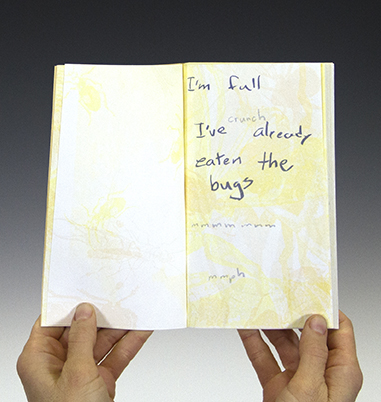 I'm full
crunch
I've already
eaten the
bugs
mmmm mmm
mmph